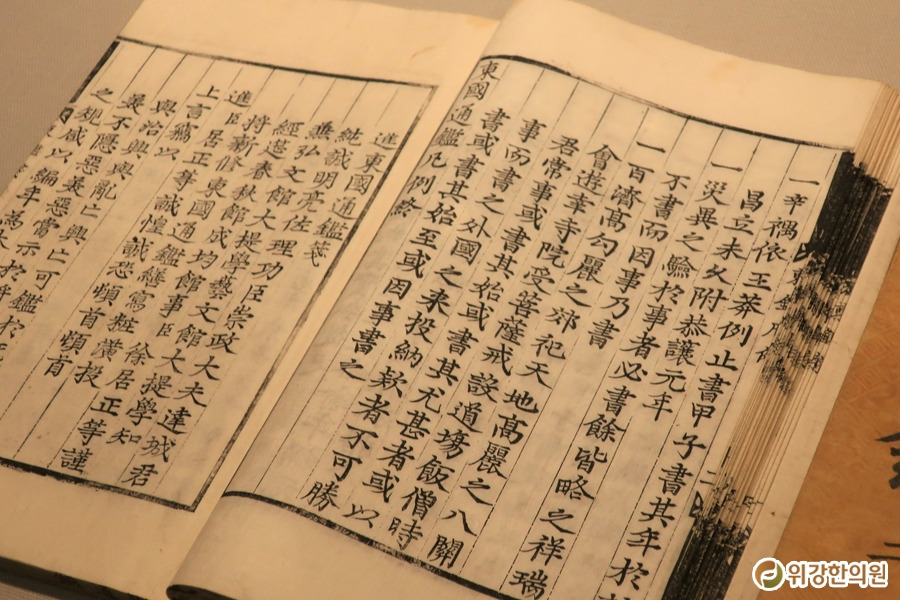 一辛禑依王莽例止書甲子書其年於
昌立未久附恭讓元年
一災異之驗於事者必書餘皆略之祥瑞
不書而因事乃書
一百濟高勾麗之郊祀天地高麗之八關
會遊幸寺院受菩薩戒設道場飯僧時
君常事或書其始或書其尤甚者或以
事而書之外國之來投納欵者不可勝
書或書其始至或因事書之
東國通鑑凡例終
進東國通鑑箋
純誠明亮佐理功臣崇政大夫達城君
兼弘文館大提學藝文館大提學知
經筵春秋館成均館事臣徐居正等謹
將新修東國通鑑繕寫粧潢投
進臣居正等誠惶誠恐頓首頓首
上言竊以
與治興與亂亡興亡可鑑於
美不隱惡美惡當示於
之規咸以編年為
위강한의원